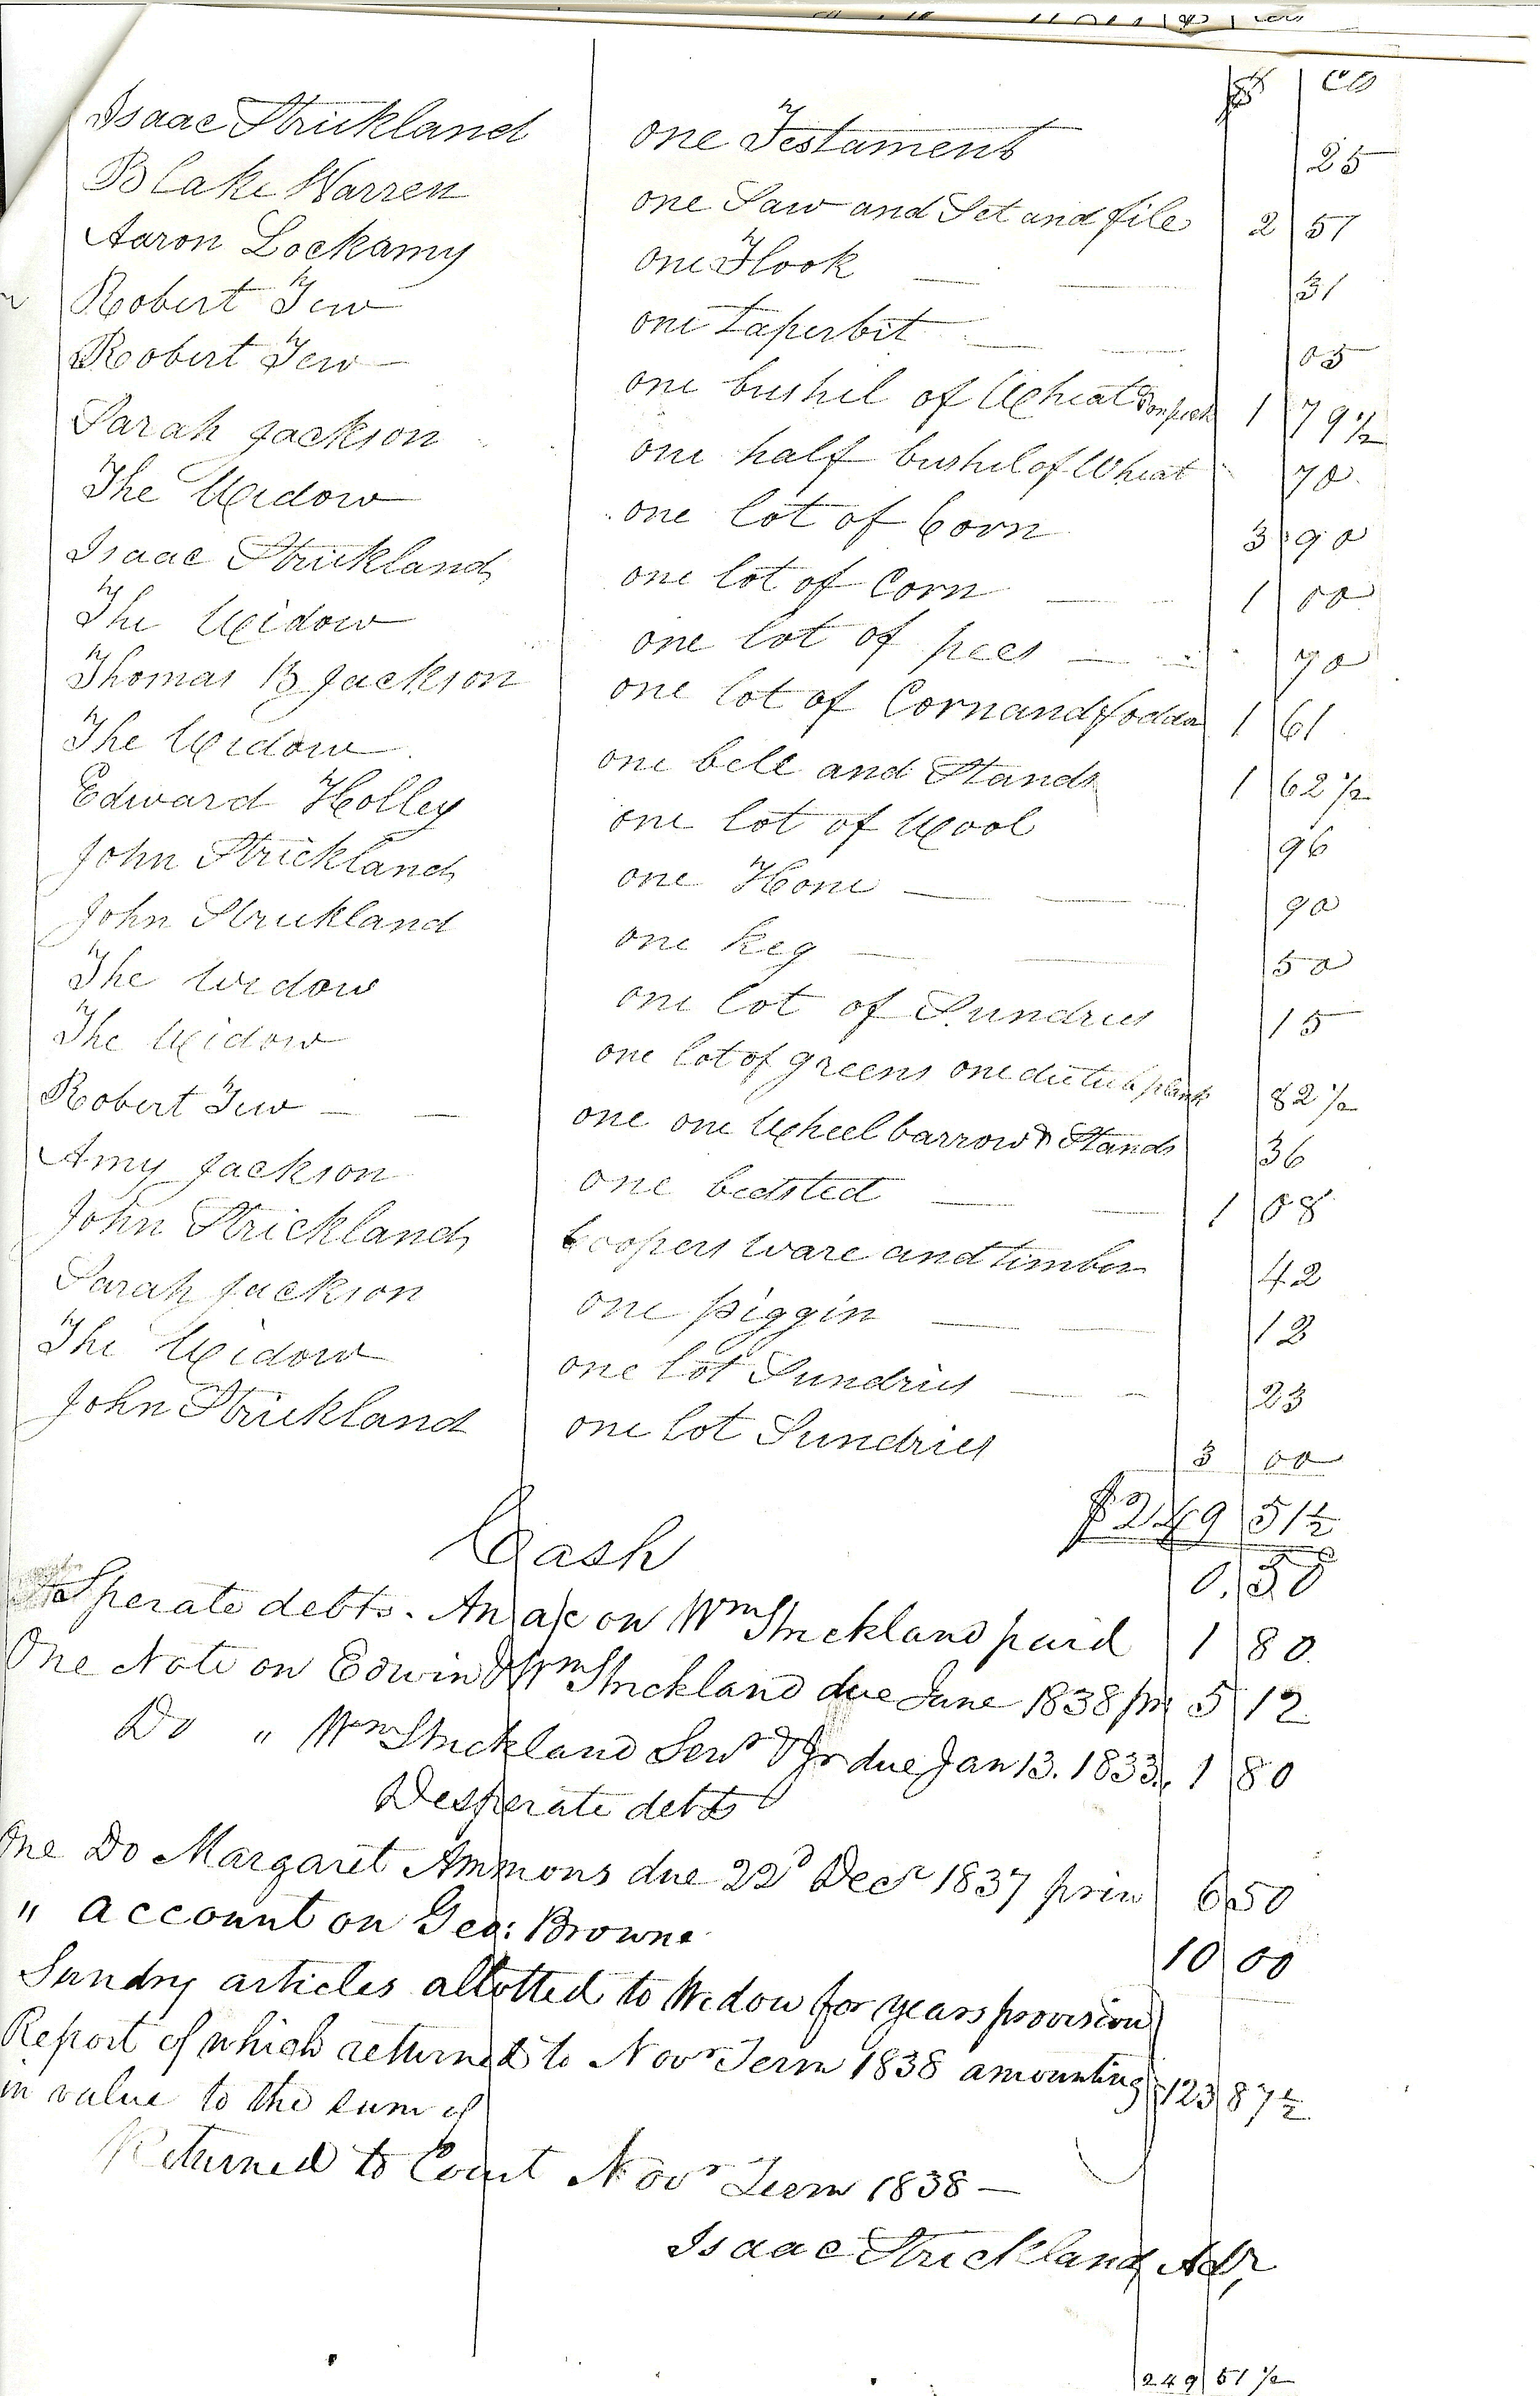 $ Cts
Isaac Strickland one Testament 25
Blake Warren one Saw and Set and file 2 57
Aaron Lockamy one Hook 31
Robert Tew one taperbit 05
Robert Tew one bushil of Wheat & on peck 1 79 1/2
Sarah Jackson one half bushil of Wheat 70
The Widow one lot of Corn 3 90
Isaac Strickland one lot of Corn 1 00
The Widow one lot of pees 70
Thomas B Jackson one lot of Corn and fodda 1 61
The Widow one bell and Stands 1 62 1/2
Edward Holley one lot of Wool 96
John Strickland one Hone 90
John Strickland one Keg 50
The Widow one lot of Sundries 15
The Widow one lot of greens one plank 82 1/2
Robert Tew one one Wheel barrow & Stands 36
Amy Jackson one bedsted 1 08
John Strickland Coopers ware and timber 42
Sarah Jackson one piggin 12
The Widow one lot Sundries 23
John Strickland one lot Sundries 3 00
$249 51 1/2
Cash 0.50
desperate debts. An a/c on Wm Strickland paid 1 80
One Note on Edwin & Wm Strickland due June 1838 prin 5 12
Do " Wm Strickland Senr & Jr due Jan 13. 1833. 1 80
Desperate debts
One Do Margaret Ammons due 22d Decr 1837 prin 6 50
" account on Geo: Browne 10 00
Sundry articles allotted to Widow for years provision
Report of which returned to Novr Term 1838 amounting 123 87 1/2
in value to the sum of
Returned to Court Novr Term 1838 —
Isaac Strickland Adr,
249 51 1/2